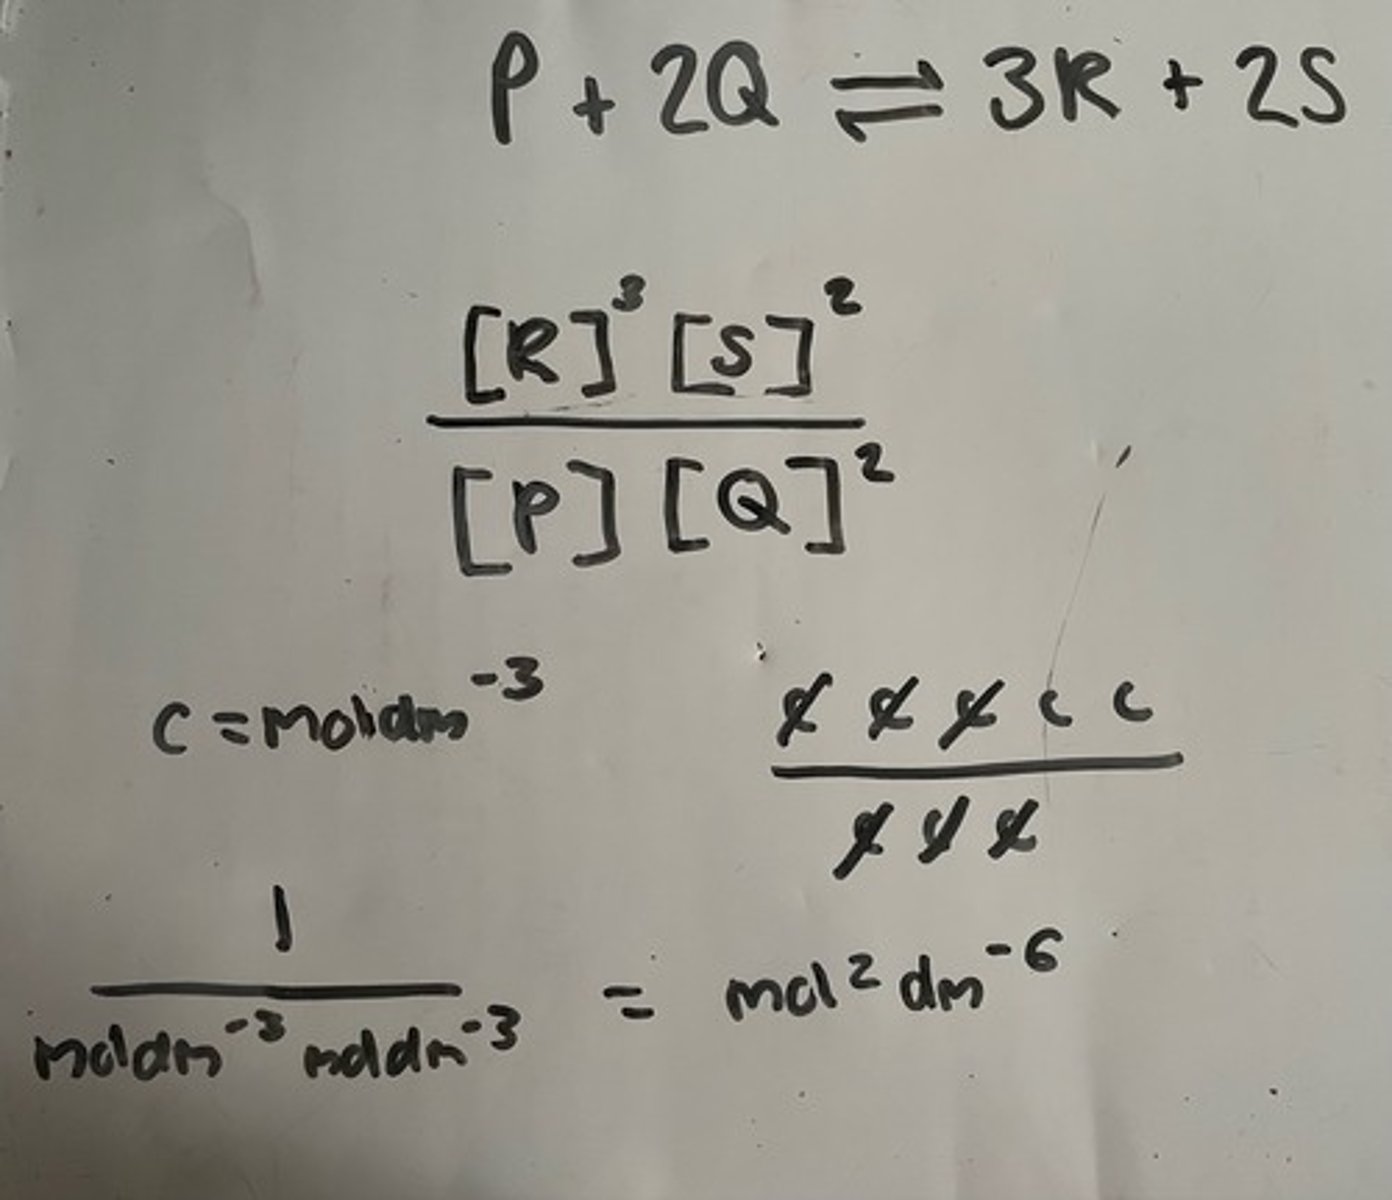 P + 2Q ⇌ 3R + 2S
[R]³ [S]²
[P] [Q]²
c = moldm⁻³
c c c c c
c c c
1
moldm⁻³ moldm⁻³ = mol² dm⁻⁶